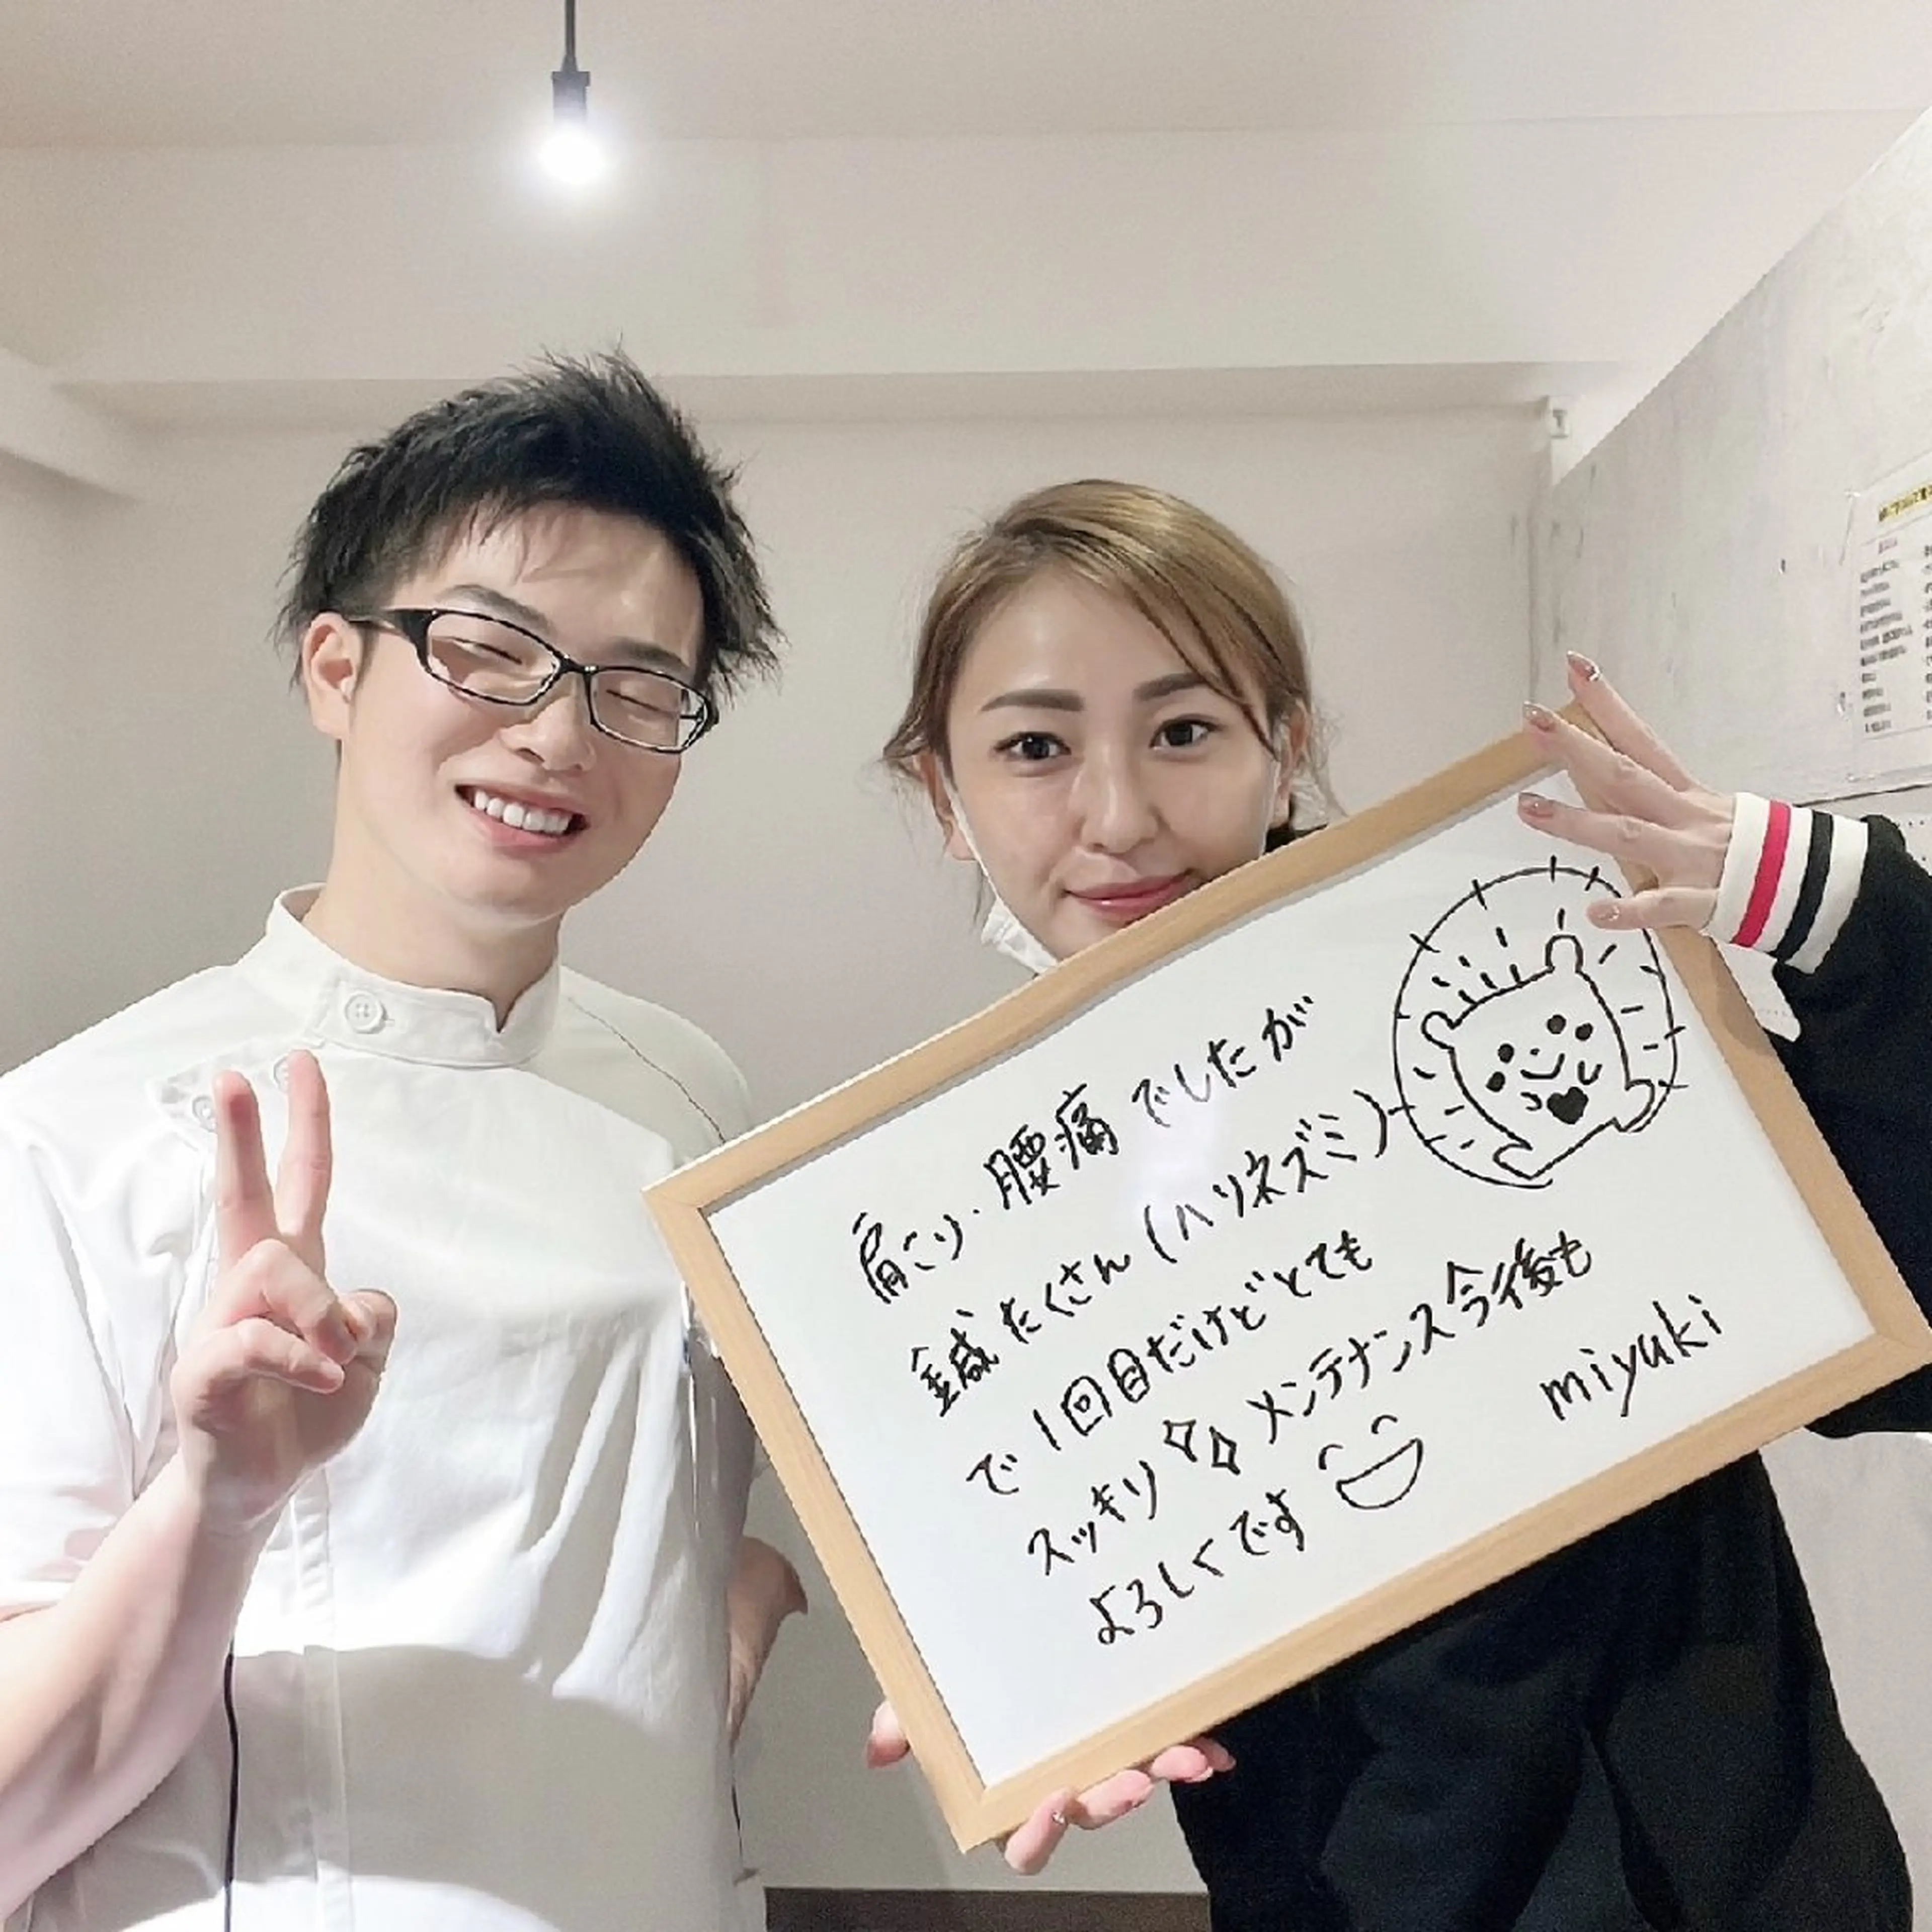 肩こり・腰痛でしたが
鍼たくさん(ハリネズミ)
で1回目だけどとても
スッキリ メンテナンス今後も
よろしくです
miyuki